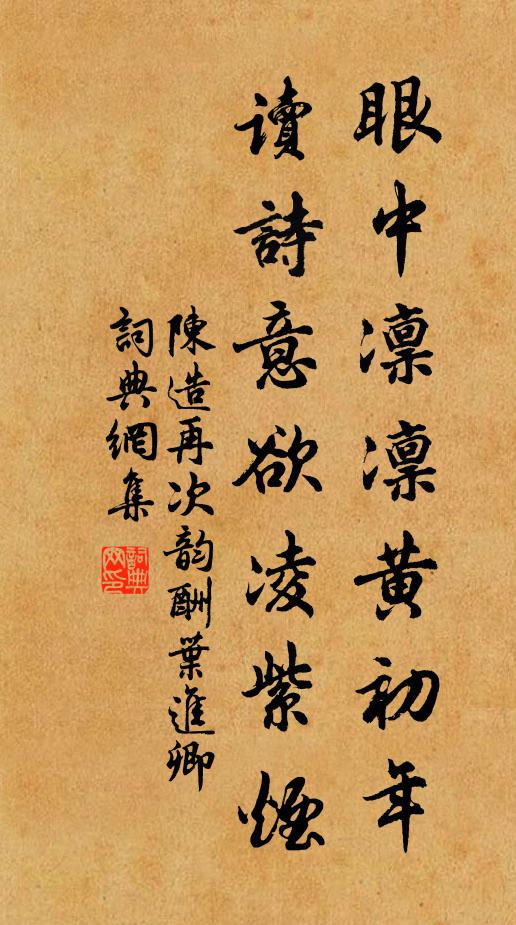 眼中凜凜黃初年
讀詩意欲凌紫煙
陳造再次韵酬葉進卿
詞典網集
詞典网印